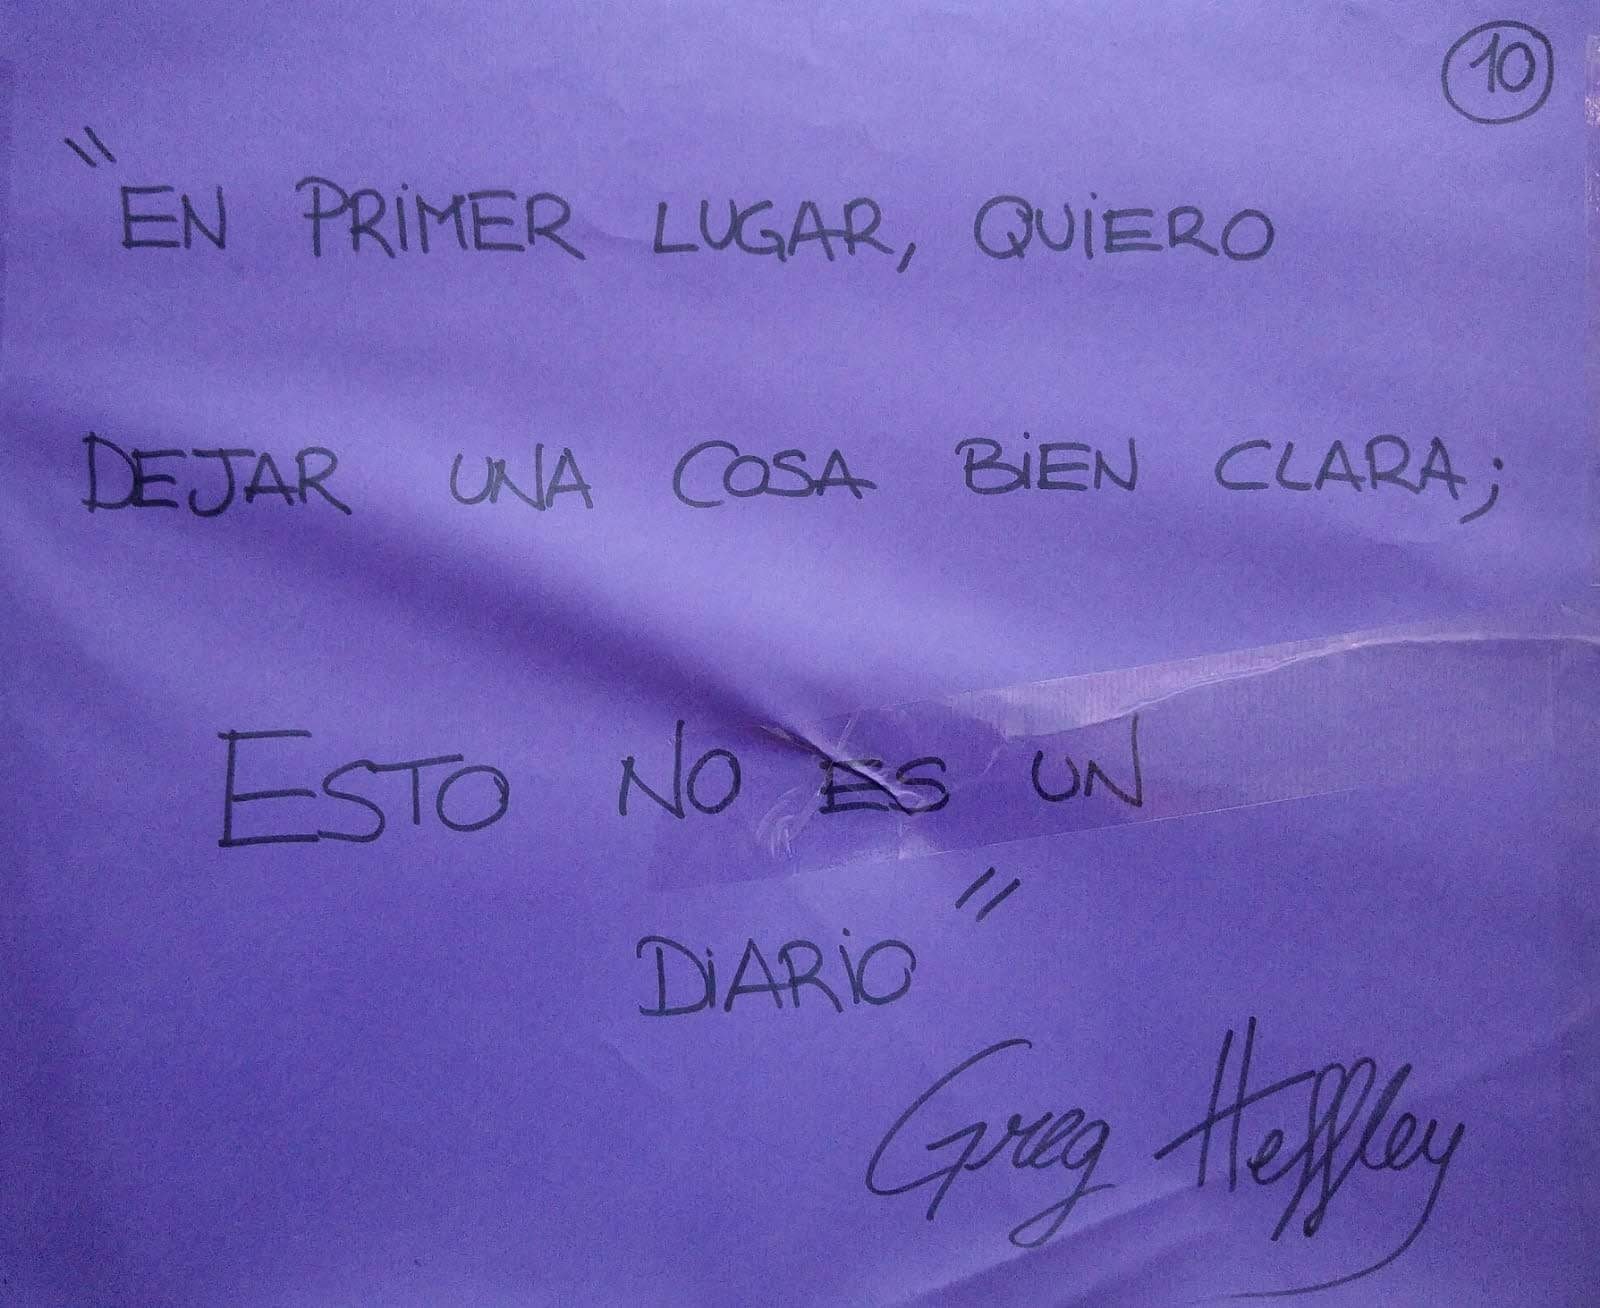 10
"EN PRIMER LUGAR, QUIERO
DEJAR UNA COSA BIEN CLARA;
ESTO NO ES UN
DIARIO"
Greg Heffley